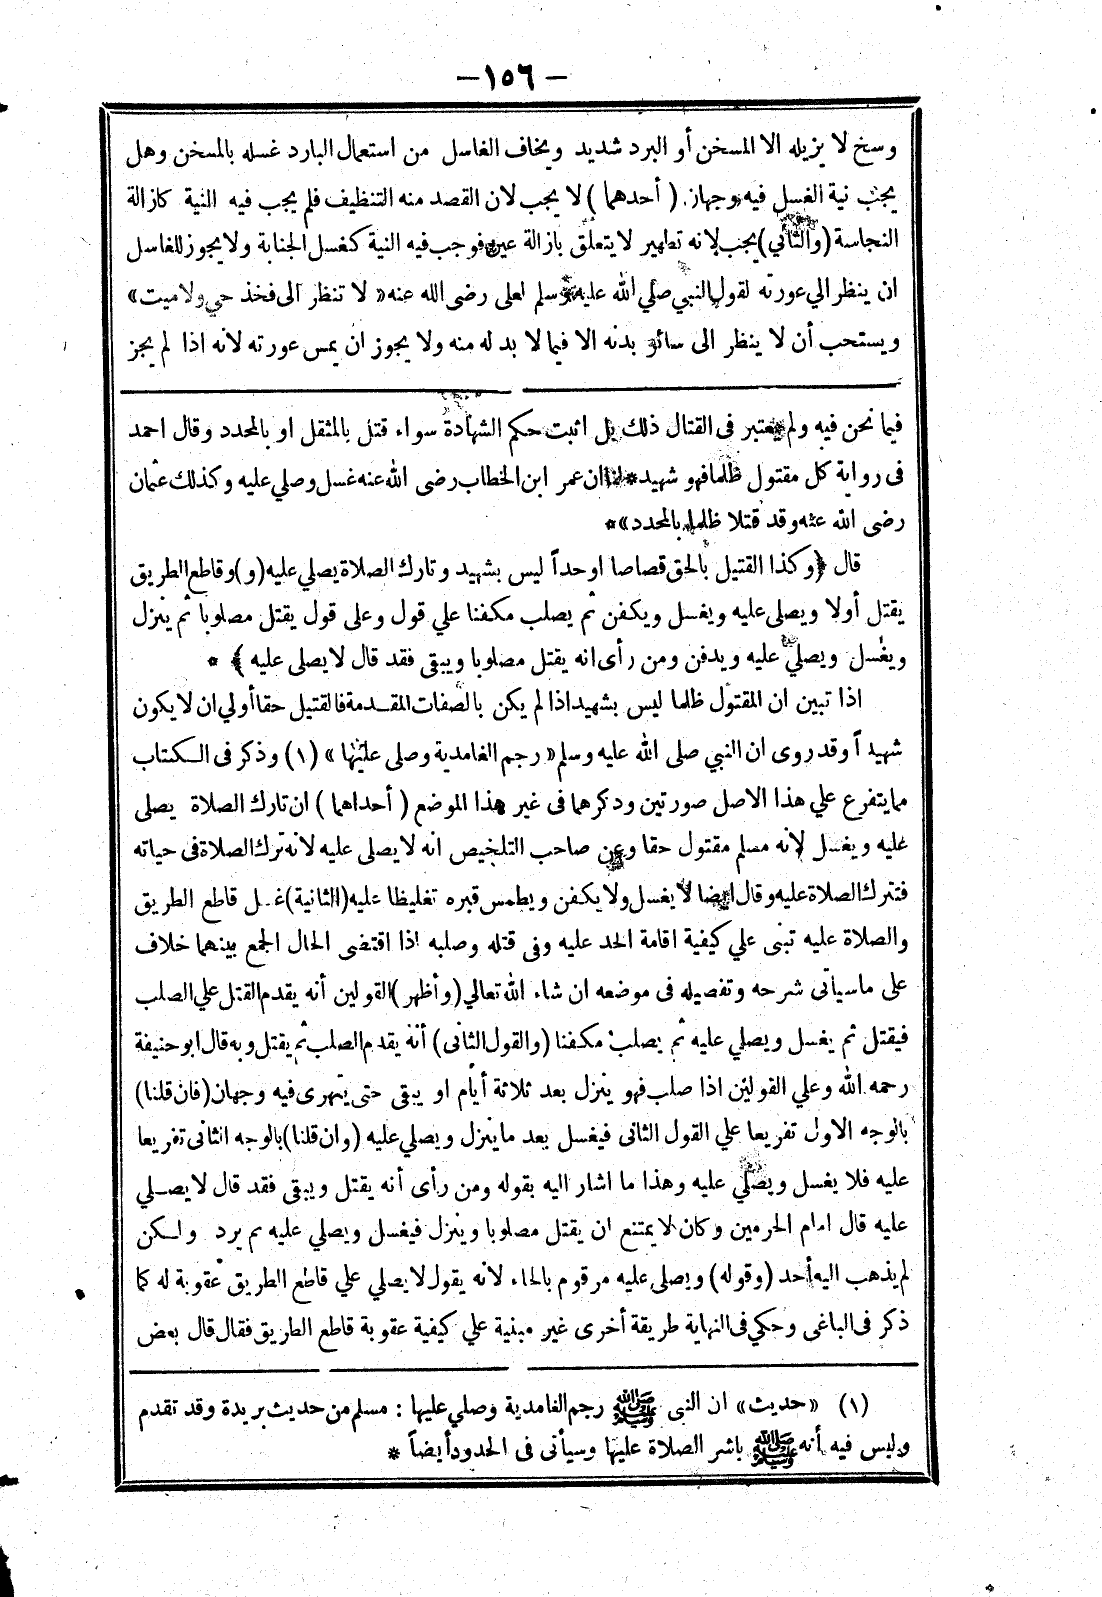 — ١٥٦ —
وسخ لا يزيله الا المسخن أو البرد شديد ويخاف الغاسل من استعمال البارد غسله بالمسخن وهل
يجب نية الغسل فيه وجهان ( أحدهما ) لا يجب لان القصد منه التنظيف فلم يجب فيه النية كازالة
النجاسة (والثاني) يجب لانه تطهير لا يتعلق بازالة عين فوجب فيه النية كغسل الجنابة ولا يجوز للغاسل
ان ينظر الي عورته لقول النبي صلي الله عليه وسلم لعلى رضى الله عنه « لا تنظر الى فخذ حي ولا ميت »
ويستحب أن لا ينظر الى سائر بدنه الا فيما لا بد له منه ولا يجوز ان يمس عورته لانه اذا لم يجز
فيما نحن فيه ولم يعتبر فى القتال ذلك بل اثبت حكم الشهادة سواء قتل بالمثقل او بالمحدد وقال احمد
فى رواية كل مقتول ظلما فهو شهيد * لنا ان عمر ابن الخطاب رضى الله عنه غسل وصلي عليه وكذلك عثمان
رضى الله عنه وقد قتلا ظلما بالمحدد » *
قال ﴿ وكذا القتيل بالحق قصاصا او حداً ليس بشهيد وتارك الصلاة يصلي عليه (و) وقاطع الطريق
يقتل أولا ويصلى عليه ويغسل ويكفن ثم يصلب مكفنا علي قول وعلى قول يقتل مصلوبا ثم ينزل
ويغسل ويصلي عليه ويدفن ومن رأى انه يقتل مصلوبا ويبقى فقد قال لا يصلى عليه ﴾ *
اذا تبين ان المقتول ظلما ليس بشهيد اذا لم يكن بالصفات المقدمة فالقتيل حقا أولي ان لا يكون
شهيداً وقد روى ان النبي صلى الله عليه وسلم « رجم الغامدية وصلى عليها » (١) وذكر فى الكتاب
مما يتفرع علي هذا الاصل صورتين وذكرهما فى غير هذا الموضع ( أحداهما ) ان تارك الصلاة يصلى
عليه ويغسل لانه مسلم مقتول حقا وعن صاحب التلخيص انه لا يصلى عليه لانه ترك الصلاة فى حياته
فتترك الصلاة عليه وقال ايضا لا يغسل ولا يكفن ويطمس قبره تغليظا عليه (الثانية) غسل قاطع الطريق
والصلاة عليه تبنى علي كيفية اقامة الحد عليه وفى قتله وصلبه اذا اقتضى الحال الجمع بينهما خلاف
على ما سيأتى شرحه وتفصيله فى موضعه ان شاء الله تعالي (وأظهر) القولين أنه يقدم القتل علي الصلب
فيقتل ثم يغسل ويصلي عليه ثم يصلب مكفنا (والقول الثانى) أنه يقدم الصلب ثم يقتل وبه قال ابو حنيفة
رحمه الله وعلي القولين اذا صلب فهو ينزل بعد ثلاثة أيام او يبقى حتى يتهرى فيه وجهان (فان قلنا)
بالوجه الاول تفريعا علي القول الثانى فيغسل بعد ما ينزل ويصلي عليه (وان قلنا) بالوجه الثانى تفريعا
عليه فلا يغسل ويصلي عليه وهذا ما اشار اليه بقوله ومن رأى أنه يقتل ويبقى فقد قال لا يصلي
عليه قال امام الحرمين وكان لا يمتنع ان يقتل مصلوبا وينزل فيغسل ويصلي عليه ثم يرد ولكن
لم يذهب اليه أحد (وقوله) ويصلى عليه مرقوم بالحاء لانه يقول لا يصلي علي قاطع الطريق عقوبة له كما
ذكر فى الباغى وحكي فى النهاية طريقة أخرى غير مبنية علي كيفية عقوبة قاطع الطريق فقال قال بعض
(١) « حديث » ان النبى ﷺ رجم الغامدية وصلي عليها : مسلم من حديث بريدة وقد تقدم
وليس فيه أنه ﷺ باشر الصلاة عليها وسيأتى فى الحدود أيضاً *